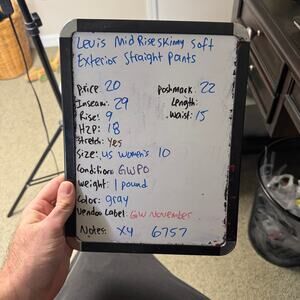 Levis Mid Rise skinny soft
Exterior Straight Pants
Price: 20 Poshmark: 22
Inseam: 29 Length:
Rise: 9 Waist: 15
H2P: 18
Stretch: Yes
Size: US Women's 10
Condition: GWPO
Weight: 1 pound
Color: gray
Vendoo Label: GW November
Notes: X4 6757